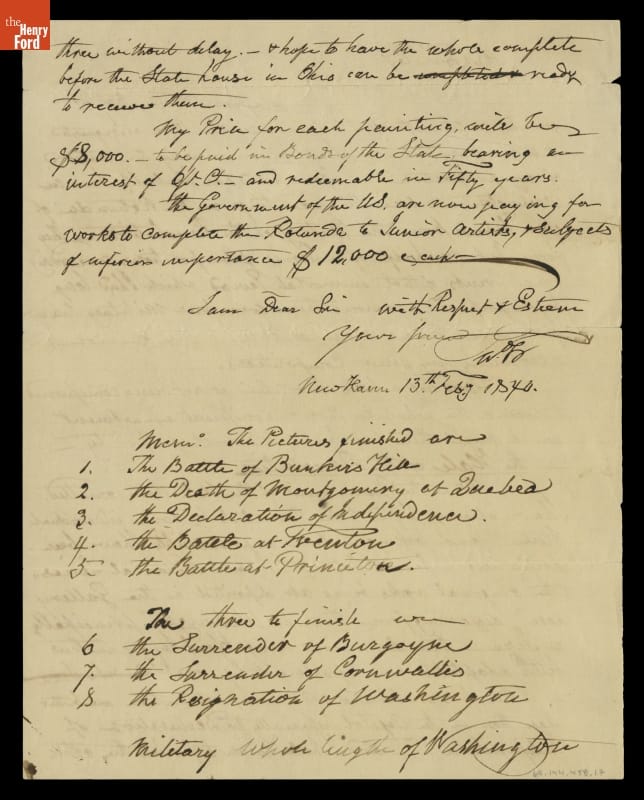 the
Henry
Ford
three without delay. — & hope to have the whole complete
before the State house in Ohio can be ready
to receive them.
My Price for each painting, will be
$8,000. — to be paid in Bonds of the State, bearing an
interest of 6 p. Ct. — and redeemable in Fifty years.
The Government of the U.S. are now paying for
works to complete the Rotunda to Junior Artists, & Subjects
of inferior importance $12,000 each —
I am Dear Sir with Respect & Esteem
Your friend
New Haven 13th Feby 1840.
Memo. The Pictures finished are
1. The Battle of Bunkers Hill
2. the Death of Montgomery at Quebec
3. the Declaration of Independence.
4. the Battle at Trenton
5. the Battle at Princeton.
The three to finish are
6 the Surrender of Burgoyne
7. the Surrender of Cornwallis
8 the Resignation of Washington
Military Whole length of Washington